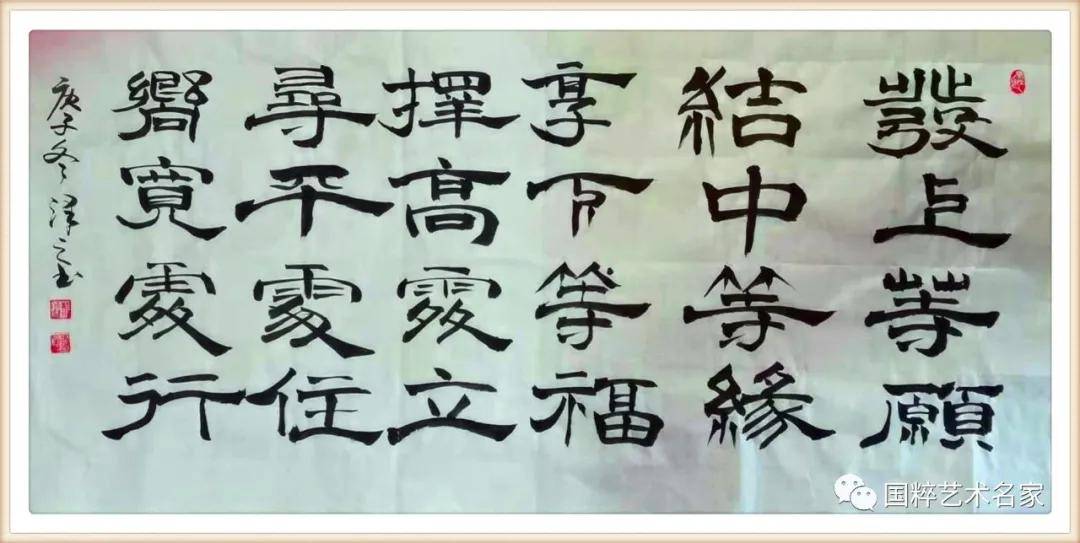 發上等願
結中等緣
享下等福
擇高處立
尋平處住
嚮寬處行
庚子冬澤之书
国粹艺术名家